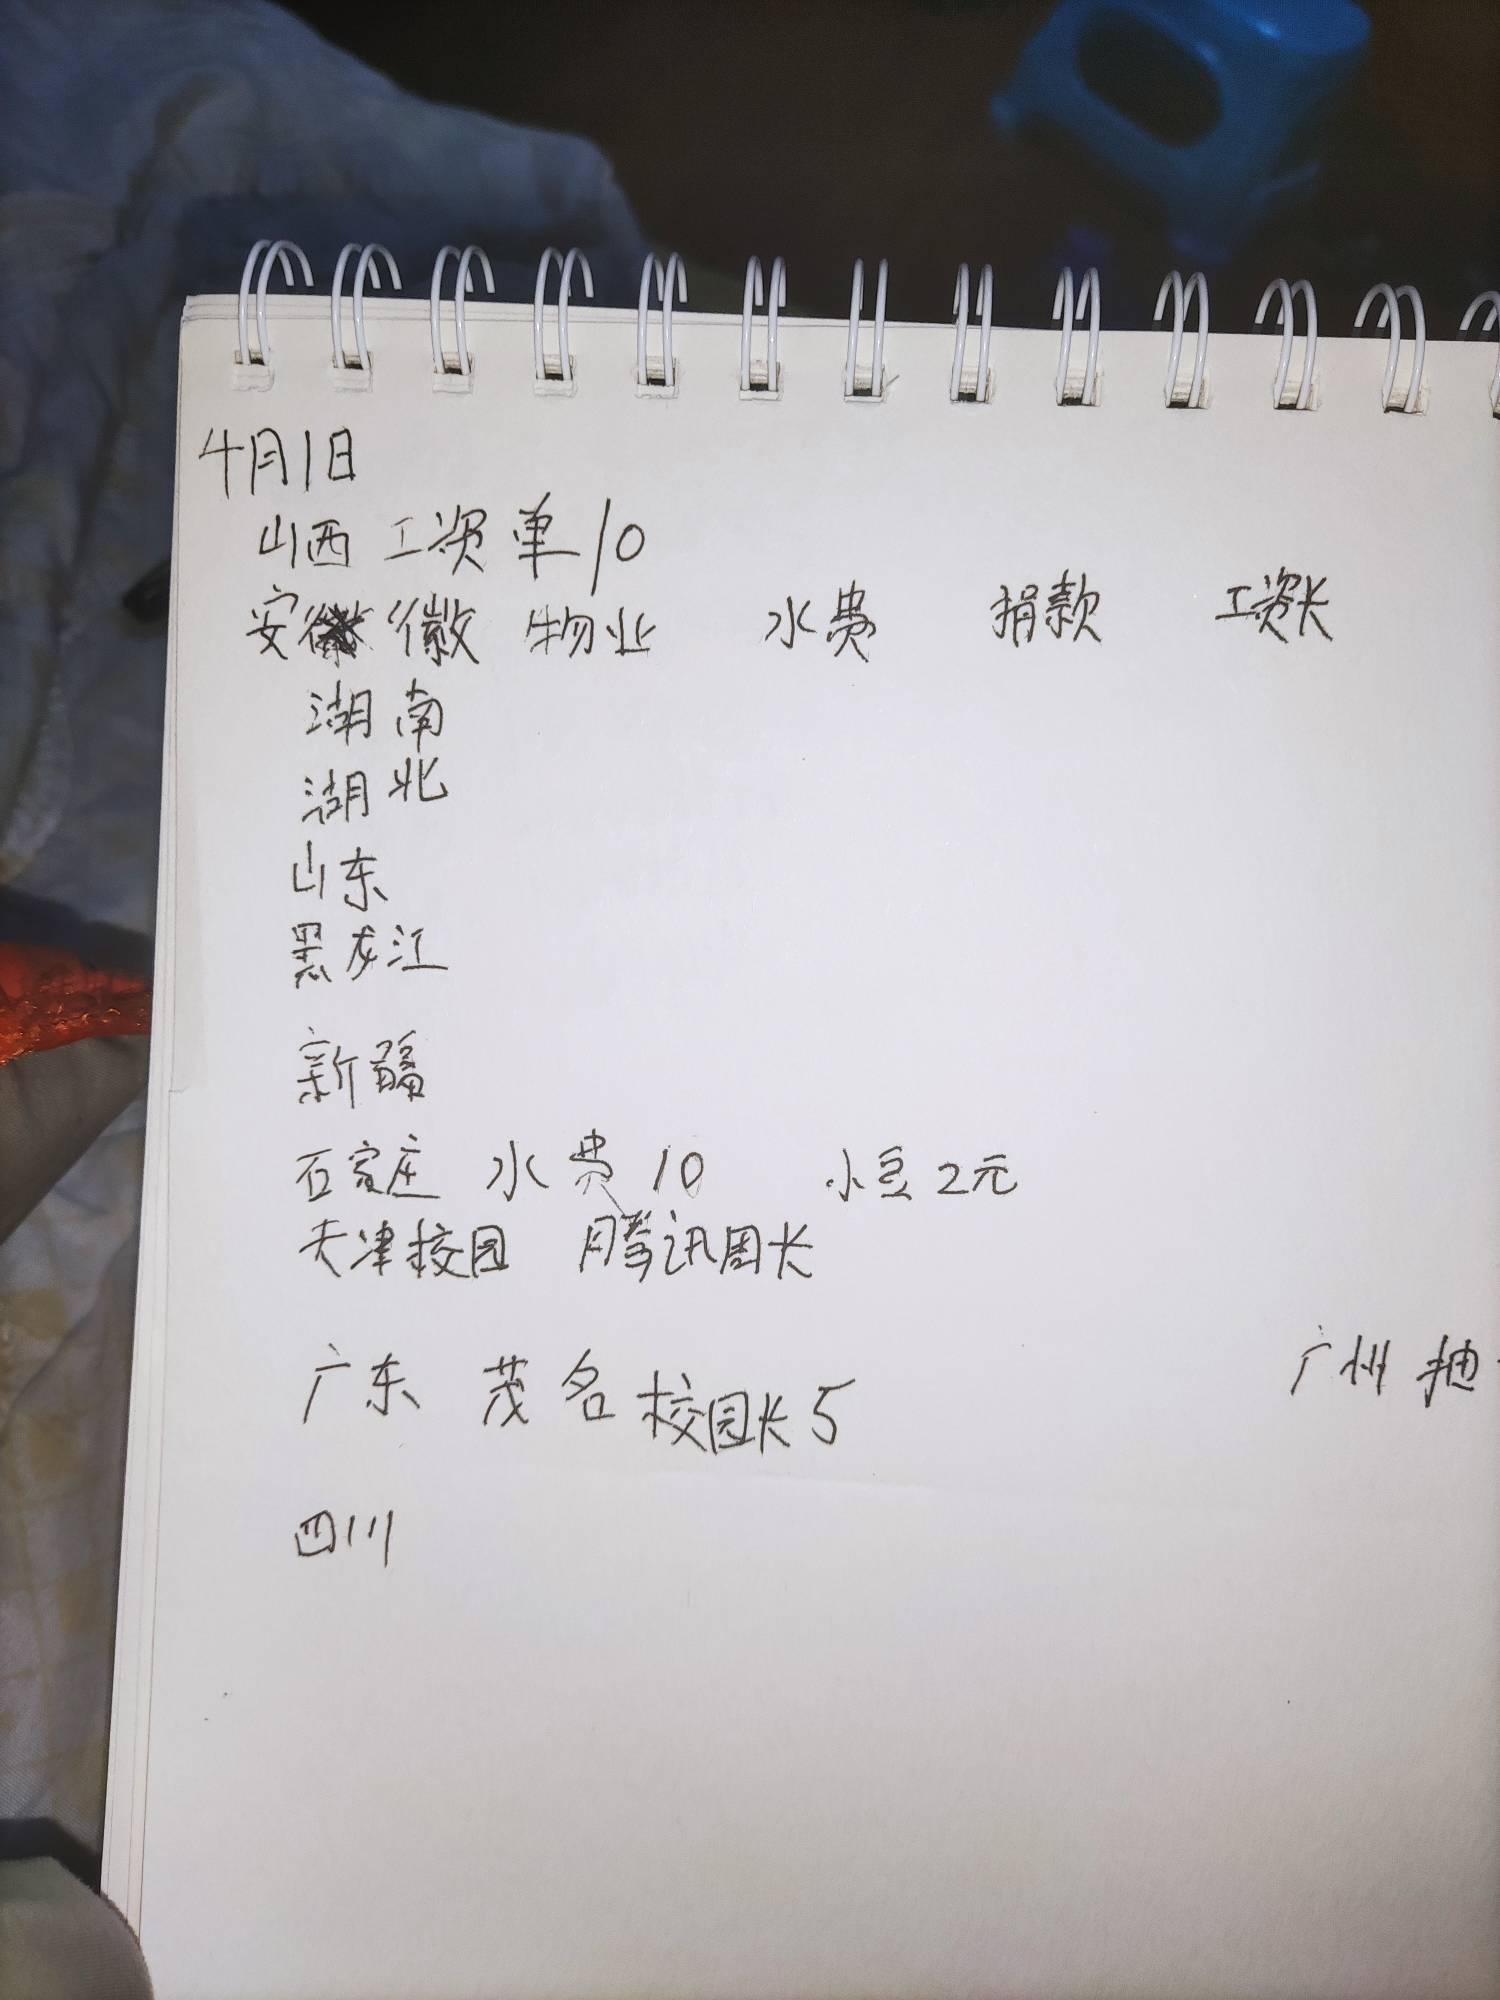 4月1日
山西 工资单10
安徽 物业 水费 捐款 工资长
湖南
湖北
山东
黑龙江
新疆
石家庄 水费10 小豆2元
天津校园 腾讯周长
广东 茂名校园长5 广州抽
四川